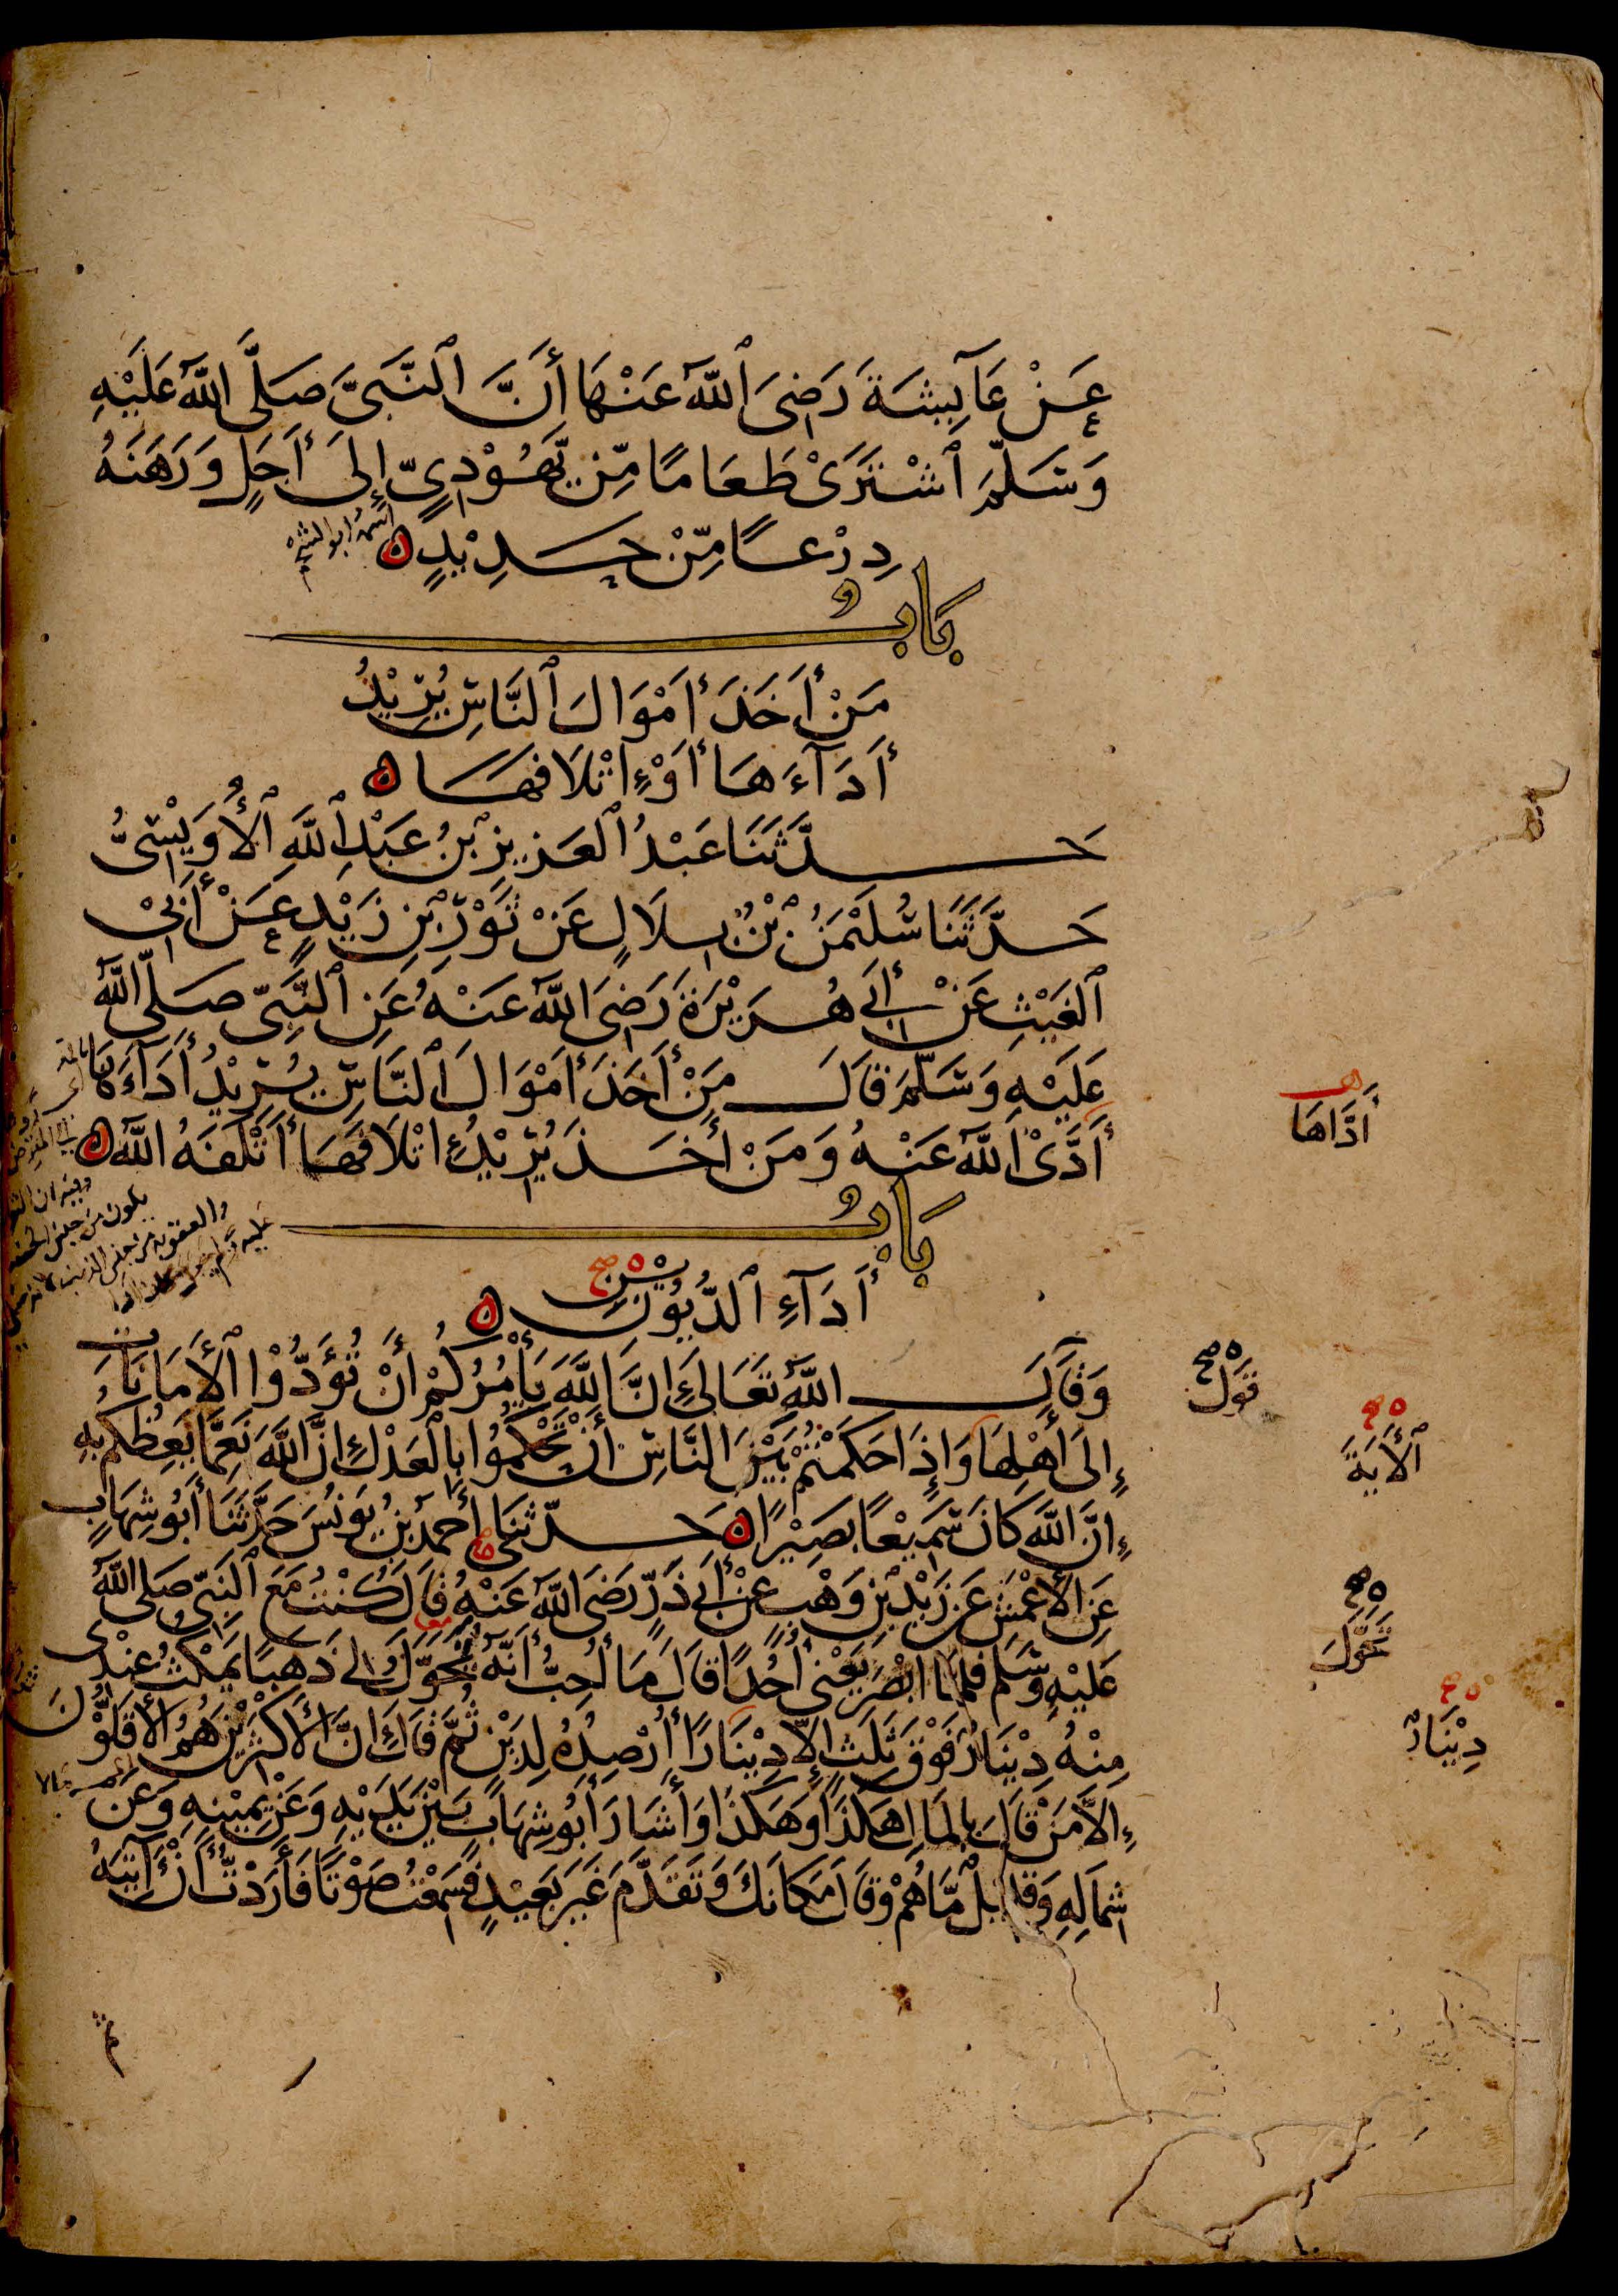 عَنْ عَآيِشَةَ رَضِيَ ٱللّٰهُ عَنْهَا أَنَّ ٱلنَّبِيَّ صَلَّى اللّٰهُ عَلَيْهِ
وَسَلَّمَ ٱشْتَرَىْ طَعَامًا مِّنْ يَّهُوْدِيٍّ إِلىَ أَجَلٍ وَرَهَنَهُ
دِرْعًا مِّنْ حَدِيْدٍ ه
اسمه ابو الشحم
بَابُ
مَنْ أَخَذَ أَمْوَالَ ٱلنَّاسِ يُرِيْدُ
أَدَآءَهَا أَوْ إِتْلَافَهَا ه
حَدَّثَنَا عَبْدُ ٱلْعَزِيزِ بْنُ عَبْدِ ٱللّٰهِ ٱلْأُوَيْسِيُّ
حَدَّثَنَا سُلَيْمٰنُ بْنُ بِلَالٍ عَنْ ثَوْرِ بْنِ زَيْدٍ عَنْ أَبِيْ
ٱلْغَيْثِ عَنْ أَبِي هُرَيْرَةَ رَضِيَ اللّٰهُ عَنْهُ عَنِ ٱلنَّبِيِّ صَلَّى اللّٰهُ
عَلَيْهِ وَسَلَّمَ قَالَ مَنْ أَخَذَ أَمْوَالَ ٱلنَّاسِ يُرِيْدُ أَدَآءَهَا
أَدَّاهَا
أَدَّىْ اللّٰهُ عَنْهُ وَمَنْ أَخَذَ يُرِيْدُ إِتْلَافَهَا أَتْلَفَهُ اللّٰهُ ه
بَابُ
أَدَآءِ ٱلدُّيُوْنِ ه
يْنِ صح
وَقَالَ اللّٰهُ تَعَالَى إِنَّ اللّٰهَ يَأْمُرُكُمْ أَنْ تُؤَدُّوْا ٱلْأَمَانَاتِ
قَوْلِ
صح
إِلَى أَهْلِهَا وَإِذَا حَكَمْتُمْ بَيْنَ النَّاسِ أَنْ تَحْكُمُوْا بِالْعَدْلِ إِنَّ اللّٰهَ نِعِمَّا يَعِظُكُمْ بِهِ
ٱلْأَيَةَ
إِنَّ اللّٰهَ كَانَ سَمِيْعًا بَصِيْرًا ه حَدَّثَنَا أَحْمَدُ بْنُ يُونُسَ حَدَّثَنَا أَبُو شِهَابٍ
عَنِ الْأَعْمَشِ عَنْ زَيْدِ بْنِ وَهْبٍ عَنْ أَبِي ذَرٍّ رَضِيَ اللّٰهُ عَنْهُ قَالَ كُنْتُ مَعَ ٱلنَّبِيِّ صَلى اللّٰهُ
عَلَيْهِ وَسَلَم فَلَمَّا أَبْصَرَ يَعْنِي أُحُدًا قَالَ مَا أُحِبُّ أَنَّهُ يُحَوَّلُ لِي ذَهَبًا يَمْكُثُ عِنْدِي
تَحَوَّلَ
صح
مِنْهُ دِيْنَارٌ فَوْقَ ثَلَثٍ إِلَّا دِيْنَارًا أُرْصِدُهُ لِدَيْنٍ ثُمَّ قَالَ إِنَّ الْأَكْثَرِيْنَ هُمُ الْأَقَلُّوْنَ
دِيْنَارٌ
إِلَّا مَنْ قَالَ بِالْمَالِ هَكَذَا وَهَكَذَا وَأَشَارَ أَبُو شِهَابٍ بَيْنَ يَدَيْهِ وَعَنْ يَمِيْنِهِ وَعَنْ
شِمَالِهِ وَقَلِيْلٌ مَّا هُمْ وَقَالَ مَكَانَكَ وَتَقَدَّمَ غَيْرَ بَعِيْدٍ فَسَمِعْتُ صَوْتًا فَأَرَدْتُّ أَنْ آتِيَهُ